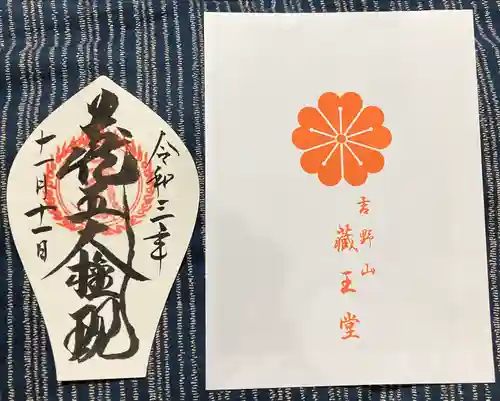 令和三年
蔵王大権現
十一月十一日
吉野山
蔵王堂